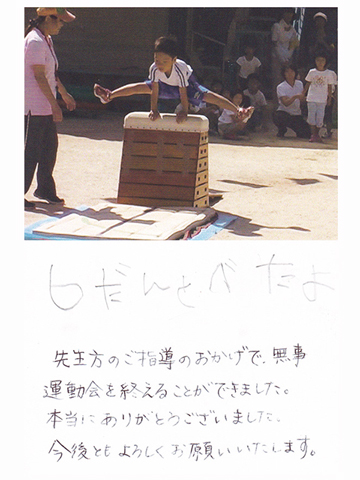 6だんとべたよ
先生方のご指導のおかげで、無事
運動会を終えることができました。
本当にありがとうございました。
今後ともよろしくお願いいたします。